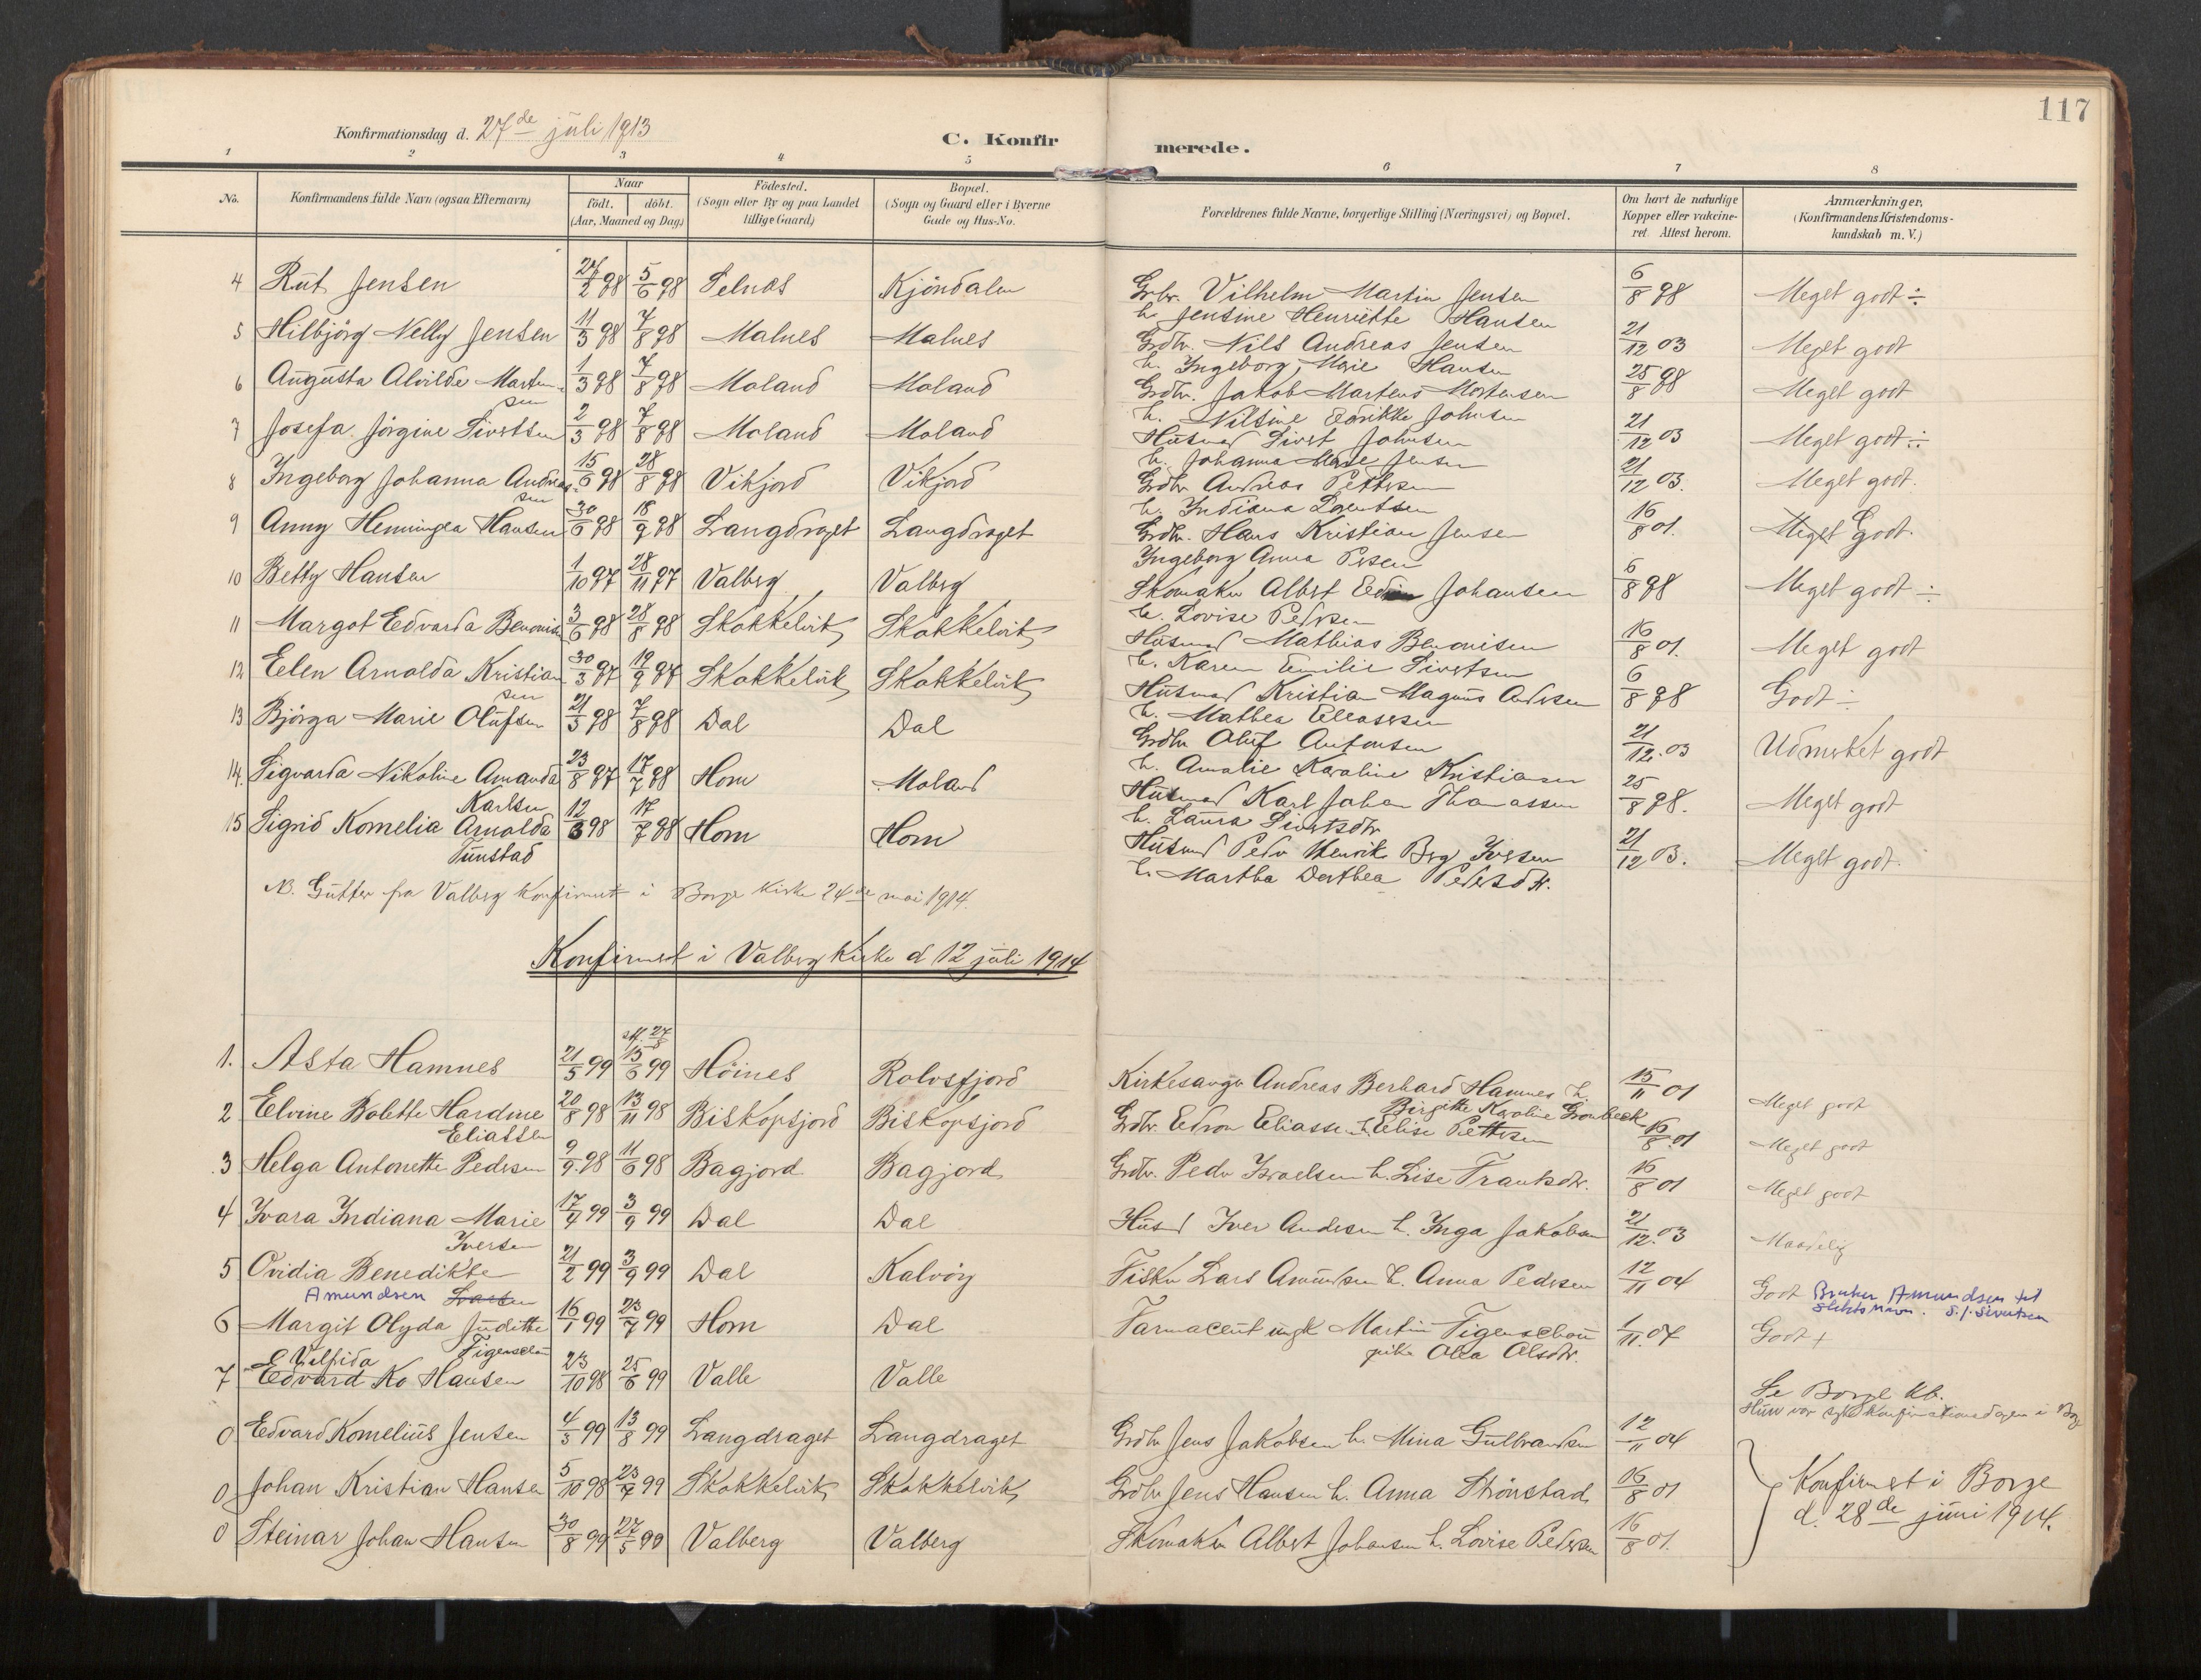 117
Konfirmationsdag d. 27de juli 1913
C. Konfirmerede.
1 2 3 4 5 6 7 8
No.
Konfirmandens fulde Navn (ogsaa Efternavn)
Naar
födt. döbt.
(Aar, Maaned og Dag)
Födested.
(Sogn eller By og paa Landet
tillige Gaard)
Bopæl.
(Sogn og Gaard eller i Byerne
Gade og Hus-No.
Forældrenes fulde Navne, borgerlige Stilling (Næringsvei) og Bopæl.
Om havt de naturlige
Kopper eller vakcine-
ret. Attest herom.
Anmærkninger,
(Konfirmandens Kristendoms-
kundskab m. V.)
4 Rut Jensen 27/2 98 5/6 98 Selnæs Kjöndalen Grbr. Vilhelm Martin Jensen 6/8 98 Meget godt ÷
h. Jensine Henriette Hansen
5 Hilbjörg Nelly Jensen 11/3 98 7/8 98 Malnes Malnes Grdbr. Nils Andreas Jensen 21/12 03 Meget godt
h. Ingeborg Marie Hansen
6 Augusta Alvilde Morten- 1/3 98 7/8 98 Moland Moland Grdbr. Jakob Martens Mortensen 25/8 98 Meget godt
sen h. Nilsine Edrikke Johnsen
7 Josefa Jörgine Sivertsen 2/3 98 7/8 98 Moland Moland Husmd Sivert Johnsen 21/12 03 Meget godt ÷
h. Johanna Marie Jensen
8 Ingeborg Johanna Andreas- 15/6 98 28/8 98 Vikjord Vikjord Grdbr Andreas Pettersen 21/12 03. Meget godt.
sen h. Indiana Lorentsen
9 Anny Henningea Hansen 30/6 98 18/9 98 Langdraget Langdraget Grdbr. Hans Kristian Jensen 16/8 01. Meget Godt.
Ingeborg Anna
10 Betty Hansen 1/10 97 28/11 97 Valberg Valberg Skomaker Albert Johansen 6/8 98 Meget godt ÷
h. Lovise Pedersen
11 Margot Edvarda Benonis 3/6 98 28/8 98 Skokkelvik Skokkelvik Husmd Mathias Benonisen 16/8 01. Meget godt
h. Karen Emilie Sivertsen
12 Eelen Arnolda Kristian 30/3 97 19/9 97 Skokkelvik Skokkelvik Husmd Kristian Magnus Andersen 6/8 98 Godt ÷
sen h. Mathea Eleasesen
13 Björga Marie Olufsen 21/3 98 7/8 98 Dal Dal Grdbr Oluf Antonsen 21/12. 03 Udmerket godt
h. Amalie Karoline Kristiansen
14. Sigvarda Nikoline Amanda 23/8 97 17/7 98 Horn Moland Husmd Karl Johan Thomassen 25/8 98. Meget godt
Karlsen h. Laura Sivertsdtr
15 Sigrid Kornelia Arnolda 12/3 98 17/7 98 Horn Horn Husmd Peder Henrik Berg Iversen 21/12 03. Meget godt.
Tunstad h. Martha Dorthea Pedersdtr.
NB. Gutter fra Valberg konfirmert i Borge Kirke 24de mai 1914.
Konfirmert i Valberg Kirke d 12 juli 1914
27/5
1. Asta Hamnes 21/5 99 13/6 99 Höines Rolvsfjord Kirkesanger Andreas Berhard Hamnes h. 15/11 01 Meget godt
Birgitte Karoline Grönbeck
2 Elvine Bolette Hardine 20/8 98 13/11 98 Biskopsjord Biskopsjord Grdbr. Edvin Eliassen h. Elise Pettersen 16/8. 01 Meget godt
Eliassen
3 Helga Antonette Pedersen 9/9. 98 11/6 98 Bagjord Bagjord Grdbr. Peder Israelsen h. Lise Frantsdtr. 16/8 01 Meget godt
4 Ivara Indiana Marie 17/4 99 3/9 99 Dal Dal Husmd Iver Andersen h. Inga Jakobsen 21/12. 03 Maadelig
Iversen
5 Ovidia Benedikte 21/2 99 3/9 99 Dal Kalvöy Fisker Lars Amundsen h. Anna Pedersen 12/11 04 Godt Bruker Amundsen til
Amundsen Larsen slektsnavn. S. J. Sivertsen
6 Margit Olyda Juditte 16/1 99 23/7 99 Horn Dal Farmaceut ungk Martin Figenschou 1/11. 07 Godt +
Figenschou pike Olea Olsdtr.
Valfrida
7 Edvard Ko Hansen 23/10 98 25/6 99 Valle Valle Se Borge kb.
Hun var syk konfirmationsdagen i Borge
0 Edvard Kornelius Jensen 4/3 99 13/8 99 Langdraget Langdraget Grdbr Jens Jakobsen h. Mina Gulbrandsen 12/11 04
0 Johan Kristian Hansen 5/10 98 23/7 99 Skokkelvik Skokkelvik Grdbr Jens Hansen h. Anna Strönstad 16/8 01 Konfirmert i Borge
d. 28de juni 1914.
0 Steinar Johan Hansen 30/8 99 27/5 99 Valberg Valberg Skomaker Albert Johansen h. Lovise Pedersen 16/8 01.